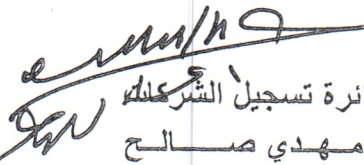 ئرة تسجيل الشركات
مهدي صالح